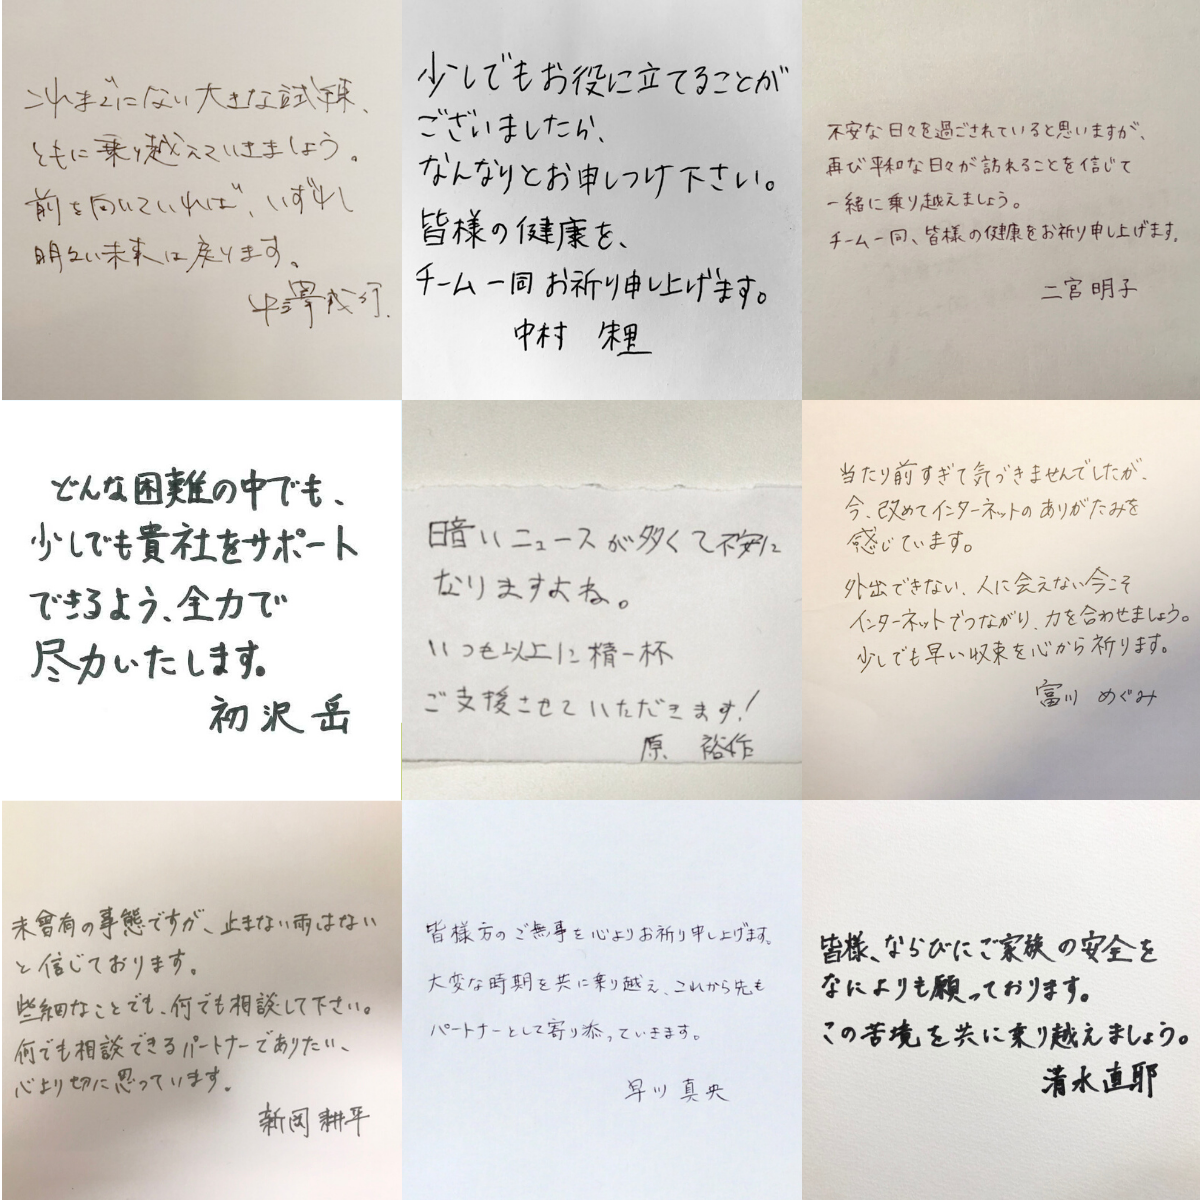 これまでにない大きな試練、
ともに乗り越えていきましょう。
前を向いていれば、いずれ
明るい未来は戻ります。
少しでもお役に立てることが
ございましたら、
なんなりとお申しつけ下さい。
皆様の健康を、
チーム一同お祈り申し上げます。
中村 朱里
不安な日々を過ごされていると思いますが、
再び平和な日々が訪れることを信じて
一緒に乗り越えましょう。
チーム一同、皆様の健康をお祈り申し上げます。
二宮明子
どんな困難の中でも、
少しでも貴社をサポート
できるよう、全力で
尽力いたします。
初沢岳
暗いニュースが多くて不安に
なりますよね。
いつも以上に精一杯
ご支援させていただきます!
原 裕作
当たり前すぎて気づきませんでしたが、
今、改めてインターネットのありがたみを
感じています。
外出できない、人に会えない今こそ
インターネットでつながり、力を合わせましょう。
少しでも早い収束を心から祈ります。
富川 めぐみ
未曾有の事態ですが、止まない雨はない
と信じております。
些細なことでも、何でも相談して下さい。
何でも相談できるパートナーでありたい、
心より切に思っています。
新岡 耕平
皆様方のご無事を心よりお祈り申し上げます。
大変な時期を共に乗り越え、これから先も
パートナーとして寄り添っていきます。
早川 真央
皆様、ならびにご家族の安全を
なによりも願っております。
この苦境を共に乗り越えましょう。
清水直耶